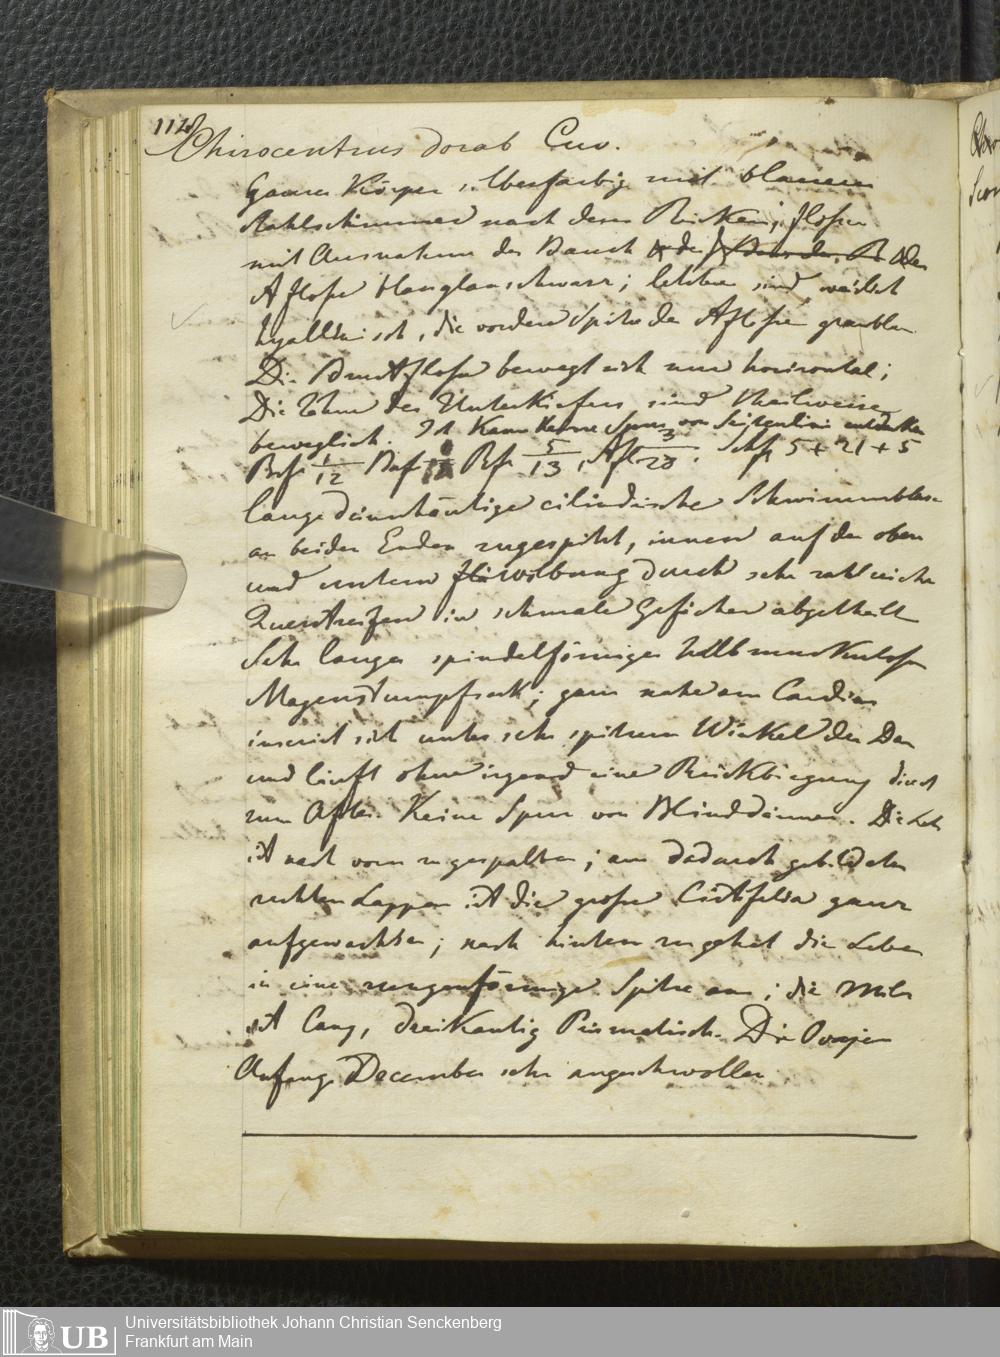 112
Chirocentrus dorab Cuv.
Ganzer Körper silberfarbig mit blauem
Stahlschimmer nach dem Rücken; flossen
mit Ausnahme der Bauch & der
A flosse blauglanschwarz; letztere sind weislich
hyallinisch, die vordere Spitze der Aflosse graublau
Die Brustflosse bewegt sich nur horizontal;
Die Zähne des Unterkiefers sind theilweise
beweglich. Ich kann keine Spur von entdecken
Brfl 1/12 Bafl Rfl 5/13, Afl 3/28. Schfl 5 + 21 + 5
lange dünnhäutige cilindrische Schwimmblase
an beiden Enden zugespitzt, innen auf der oben
und untern Wölbung durch sehr zahlreiche
Querstreifen in schmale abgetheilt
Sehr langer spindelförmiger muskulose
Magenstumpfsack; ganz nahe am Cardias
inserirt sich unter sehr spitzem Winkel der Dar
und läuft ohne irgend eine Rückbiegung direct
zum After. Keine Spur von Blinddärmen. Die Leb
ist nach vorn zugespalten; am dadurch gebildeten
rechten Lappen ist die grosse Cistifellea ganz
aufgewachsen; nach hinten zu gehet die Leber
in eine zungenförmige Spitze aus; die Milz
ist lang, dreikantig Prismatisch. Die Ovarien
Anfangs December sehr angeschwollen
Universitätsbibliothek Johann Christian Senckenberg
UB
Frankfurt am Main